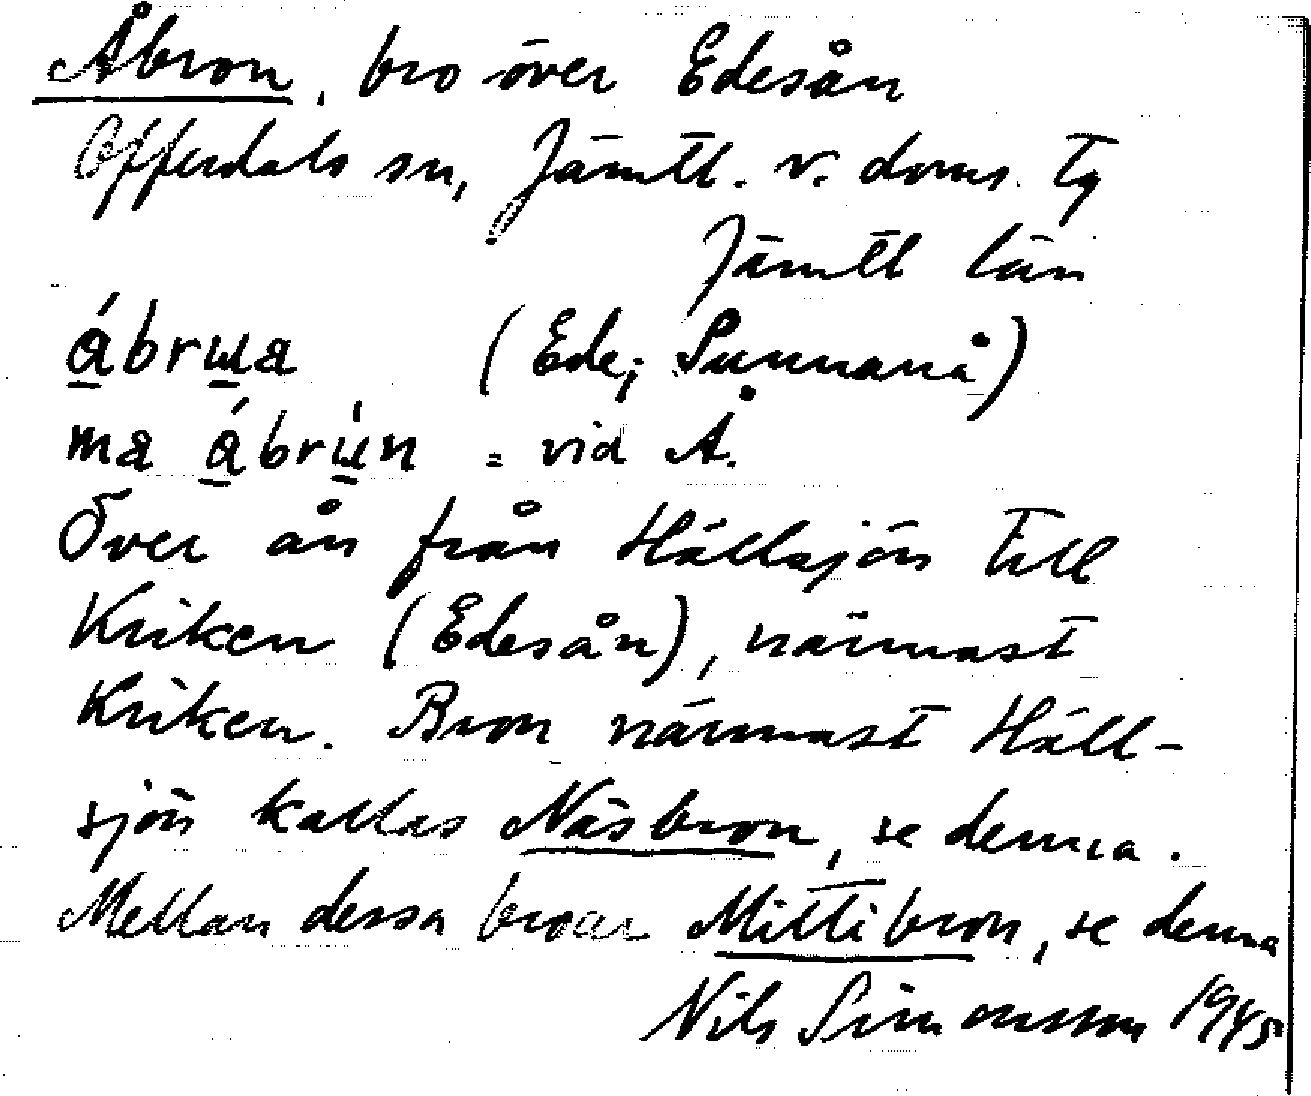 Åbron, bro över Edesån
Offerdals sn, Jämtl. v. doms. Tg
Jämtl län
ábrɯa (Ede; Sunnanå)
ma ábrɯ̀n = vid Å.
Över ån från Hällsjön till
Kniken (Edesån), närmast
Kniken. Bron närmast Häll-
sjön kallas Näsbron, se denna.
Mellan dessa broar Mittibron, se denna
Nils Simonsson 1945